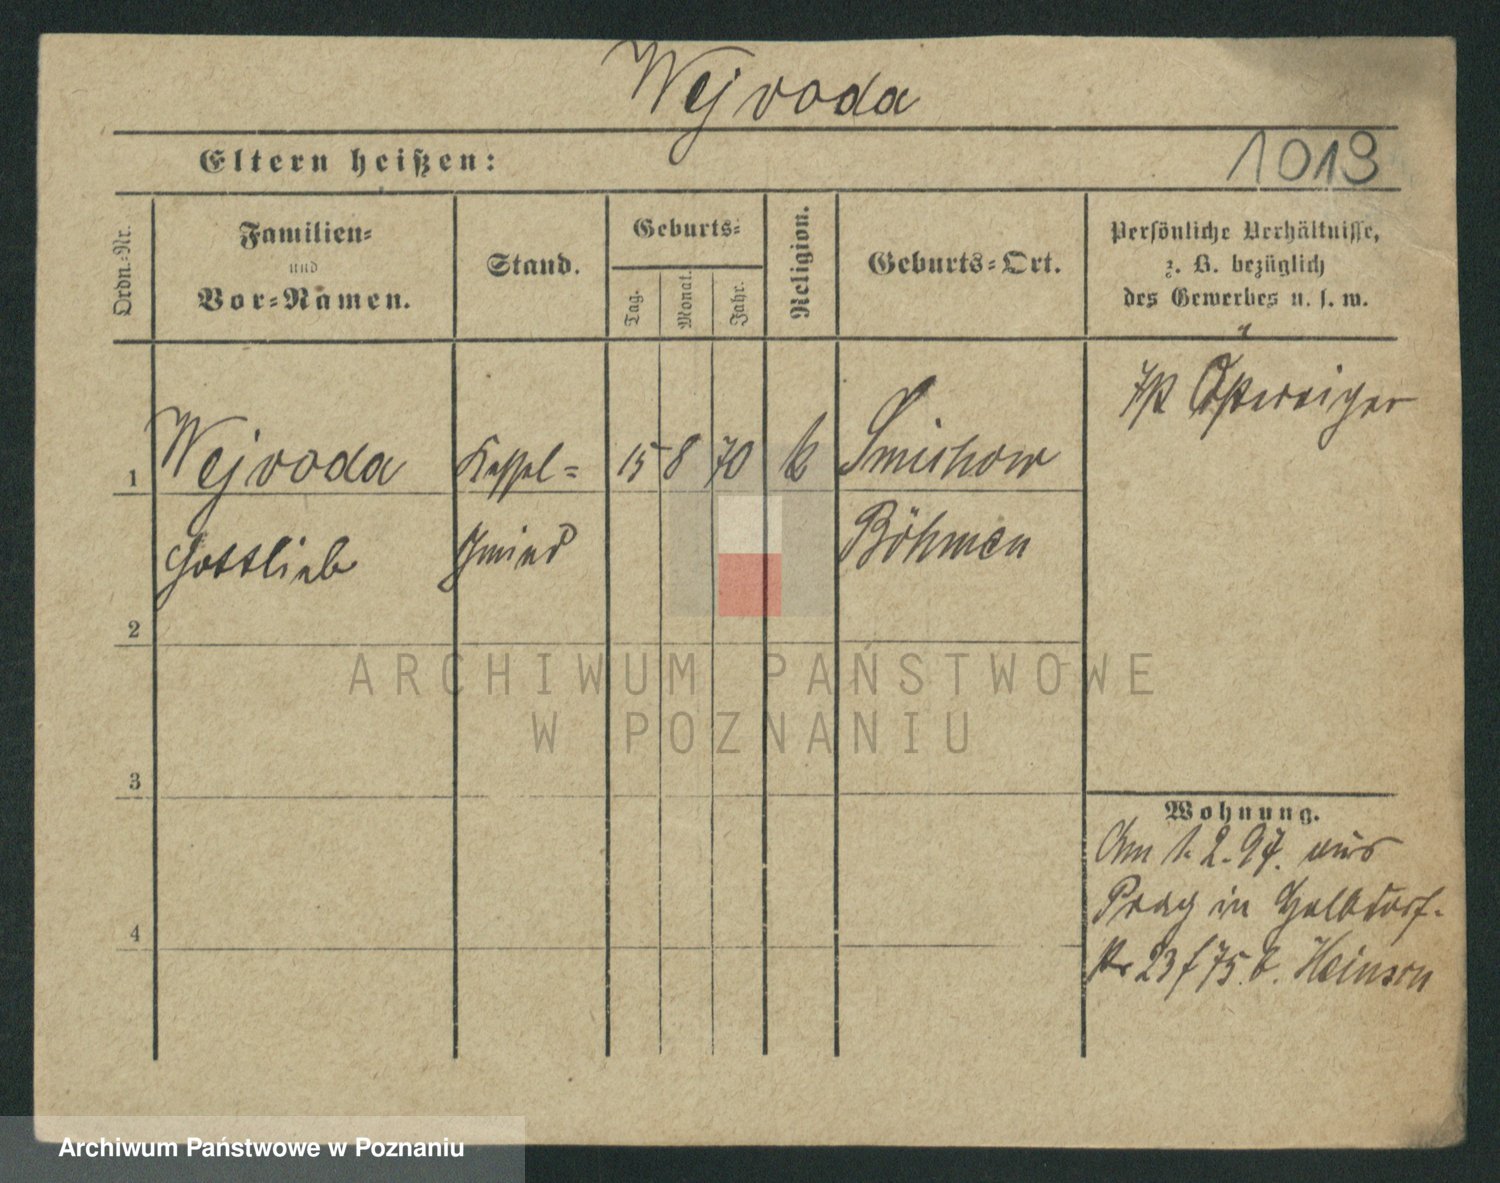 Wejvoda
Eltern heißen:
1019
Ordn.-Nr.
Familien-
und
Vor-Namen.
Stand.
Geburts-
Tag.
Monat.
Jahr.
Religion.
Geburts-Ort.
Persönliche Verhältnisse,
z. B. bezüglich
des Gewerbes u. s. w.
1 Wejvoda Kessel- 15 8 70 k Smichow
Gottlieb Smied Böhmen
ist
2
3
4
Wohnung.
Am 1. 2. 97. aus
Prag in Halbdorf-
str 23 f 75. b. Heinson
ARCHIWUM PAŃSTWOWE
W POZNANIU
Archiwum Państwowe w Poznaniu